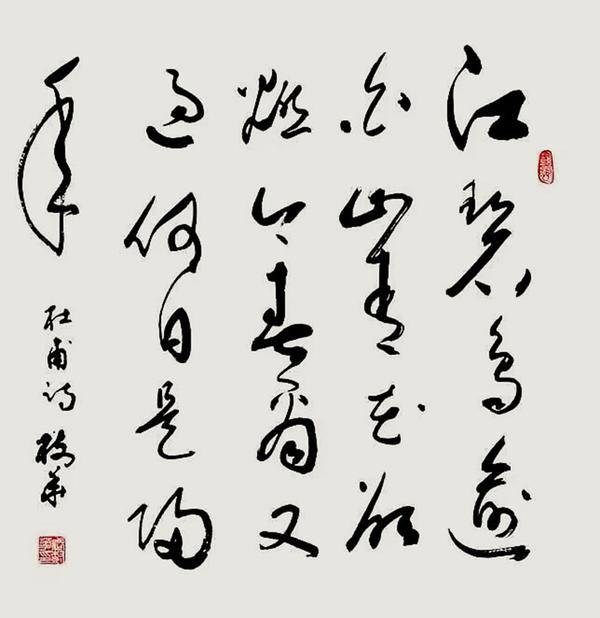 江碧鳥逾
白山青花欲
燃今春看又
過何日是歸
年
杜甫詩